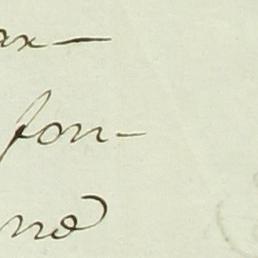 ax-
fon-
ne